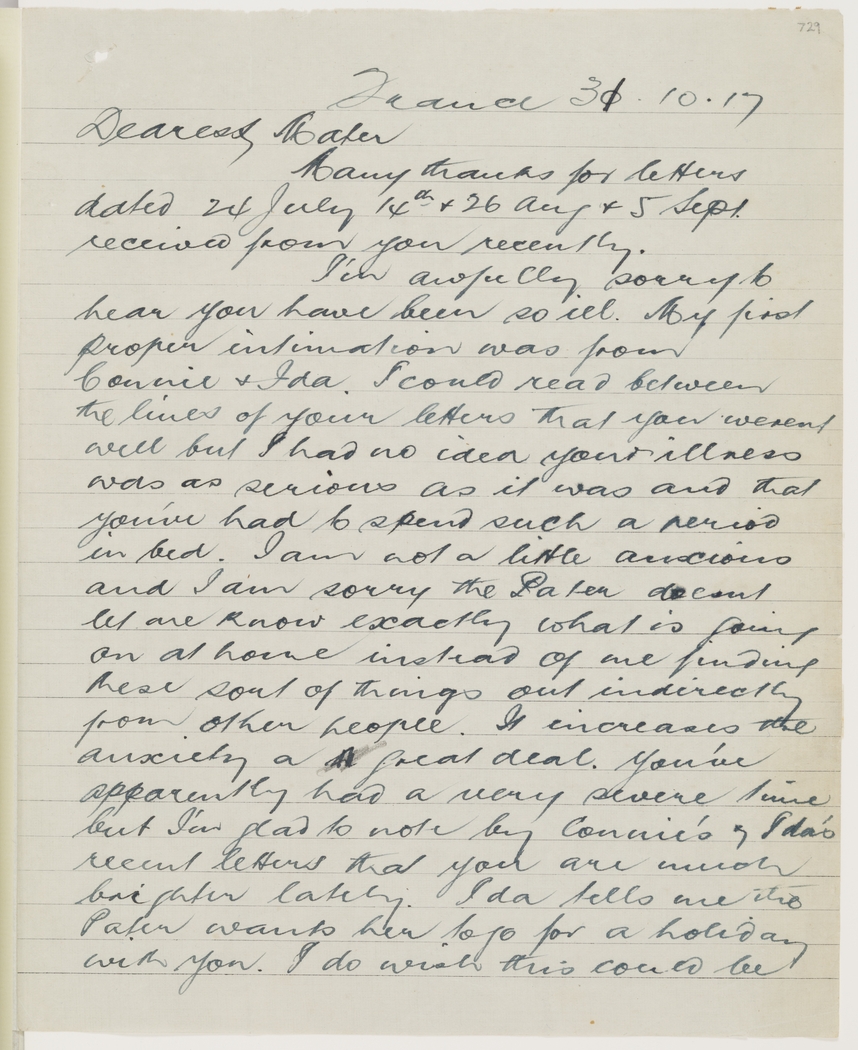 729
France 31.10.17
Dearest Mater
Many thanks for letters
dated 24 July 14th + 26 Aug + 5 Sept.
received from you recently.
I'm awfully sorry to
hear you have been so ill. My first
proper intimation was from
Connie + Ida. I could read between
the lines of your letters that you werent
well but I had no idea your illness
was as serious as it was and that
you've had to spend such a period
in bed. I am not a little anxious
and I am sorry the Pater doesnt
let me know exactly what is going
on at home instead of me finding
these sort of things out indirectly
from other people. It increases the
anxiety a great deal. You've
apparently had a very severe time
but I'm glad to note by Connie's & Ida's
recent letters that you are much
brighter lately. Ida tells me the
Pater wants her to go for a holiday
with you. I do wish this could be